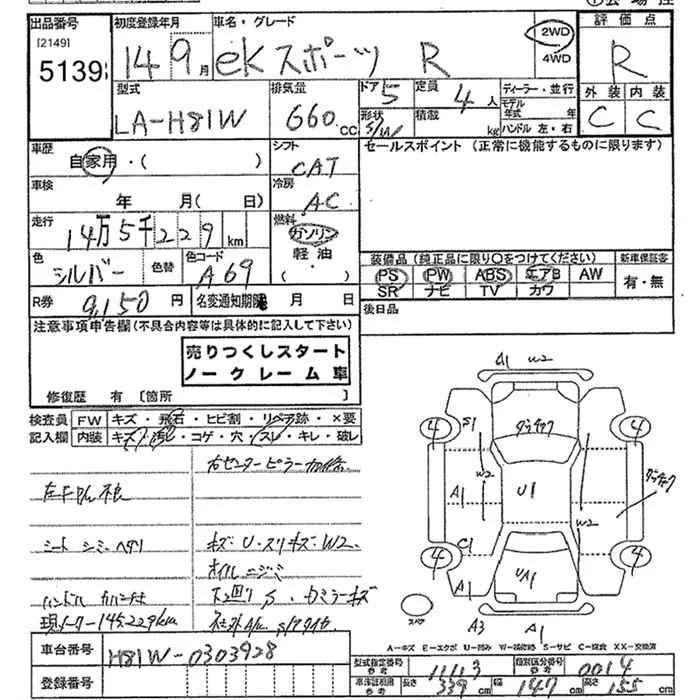 出品番号 初度登録年月 車名・グレード 評価点
[2149]
5139 14 9月 eKスポーツ R 2WD 4WD R
型式 排気量 ドア 定員 ディーラー・並行 外装 内装
LA-H81W 660cc 5 4人 モデル年式 年 C C
形状 S/W 積載 kg ハンドル 左・右
車歴 シフト セールスポイント (正常に機能するものに限ります)
自家用・( ) CAT
車検 冷房
年 月( 日) AC
走行 燃料
14万5千229km ガソリン
色 色コード 軽油・
シルバー 色替 A69 ( )
装備品 (純正品に限り〇をつけてください) 新車保証書
PS PW ABS エアB AW 有・無
SR ナビ TV カワ
R券 9,150円 名変通知期限 月 日 後日品
注意事項申告欄(不具合内容等は具体的に記入して下さい)
売りつくしスタート
ノークレーム車
修復歴 有 [箇所 ]
検査員 FW キズ・飛石・ヒビ割・リペア跡・×要
記入欄 内装 キズ・汚れ・コゲ・穴・スレ・キレ・破レ
右センターピラー
シート シミ ヘタリ キズ・U・スリキズ・W2
オイルニジミ
下廻りS・
現メーター145,229km
車台番号 H81W-0303928
登録番号
A1 W2
S1 4 4 W2 A1 U1 W2 C1 4 4 A1 UA1 A3 A1
スペア
A=キズ E=エクボ U=凹み W=補修跡 S=サビ C=腐食 XX=交換済
型式指定番号 参考 11113 類別区分番号 参考 0014
車体証範囲 参考 長さ 339cm 幅 147cm 高さ 155cm